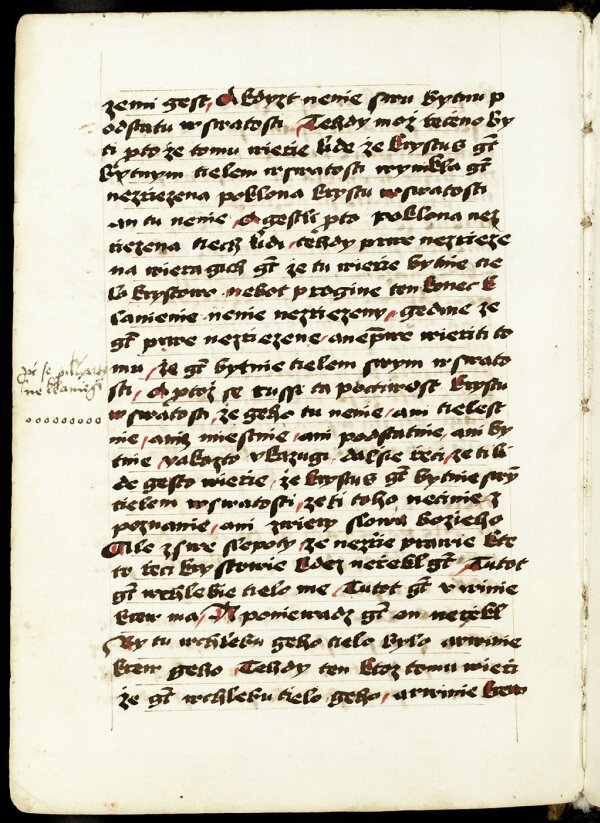 zemi gest, A kdyzt nenie swu bytnu p
odstatu wswatosti Tehdy moz rečeno by
ti pto že tomu wierie lide že krystus gt
bytnym tielem wswatosti wynikla gt
nezriezena poklona krystu wswatosti
an tu nenie A gestli pto poklona nez
riezena tiech lidi, tehdy prwe nezrieze
na wiera gich gt že tu wierie bytne tie
lo krystowo nebot progine ten konec k
lanienie nenie nezriezeny, gedine že
gt prwe nezriezene aneprwe wieriti to
mu, že gt bytnie tielem swym wswato
sti, A ptož se russi ta pocztiwost krystu
wswatosti, že geho tu nenie ani tielest
nie, ani miestnie ani podstatnie, ani by
tnie yakazto vkazugi, dalsie řeči, že ti li
de gesto wierie, že krystus gt bytnie swy
tielem wswatosti, že ti toho necinie z
poznanie, ani zwiery slowa bozieho
Ale zswe slepoty, že nezrie prawie kte
to řeči krystowie kdez neřekl gt, Tutot
gt wchlebie tielo me, Tutot gt v winie
krew ma, A poniewadz gt on neřekl
By tu wchlebu geho tielo bylo awwinie
krew geho Tehdy ten ktoz tomu wieri
že gt wchlebu tielo geho, awwinie krew
neklaniegi